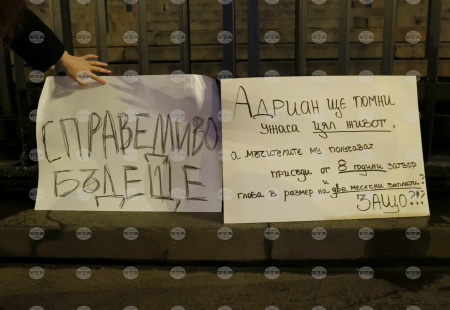 СПРАВЕДЛИВО
БЪДЕЩЕ
Адриан ще помни
ужаса цял живот,
а мъчителите му получават
присъди от 8 години затвор
и
глоба в размер на две месечни заплати?
ЗАЩО?!?
БТА